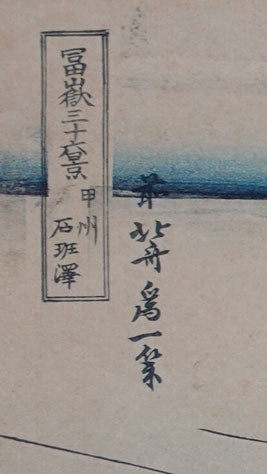 冨嶽三十六景
甲州
石班澤
前北斎爲一筆